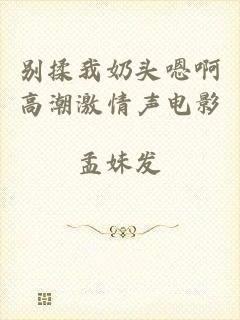 别揉我奶头嗯啊
高潮激情声电影
孟妹发